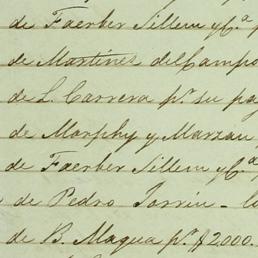 de Faerber Sillem y Cª p
de Martinez del Campo
de L. Carrera pr. su pa
de Morphy y Marzan
de Faerber Sillem y Cª
de Pedro Jorrin - Co
de B. Maqua pr. $2000.